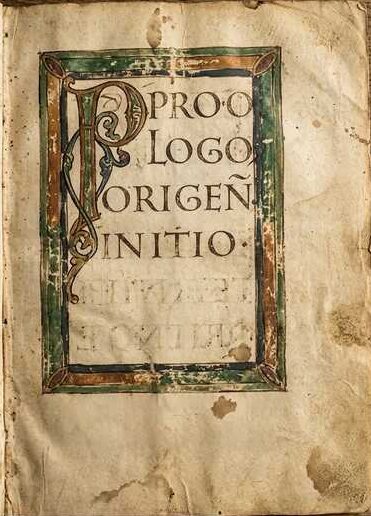 PPRO·O
LOGO
ORIGEÑ
INITIO·